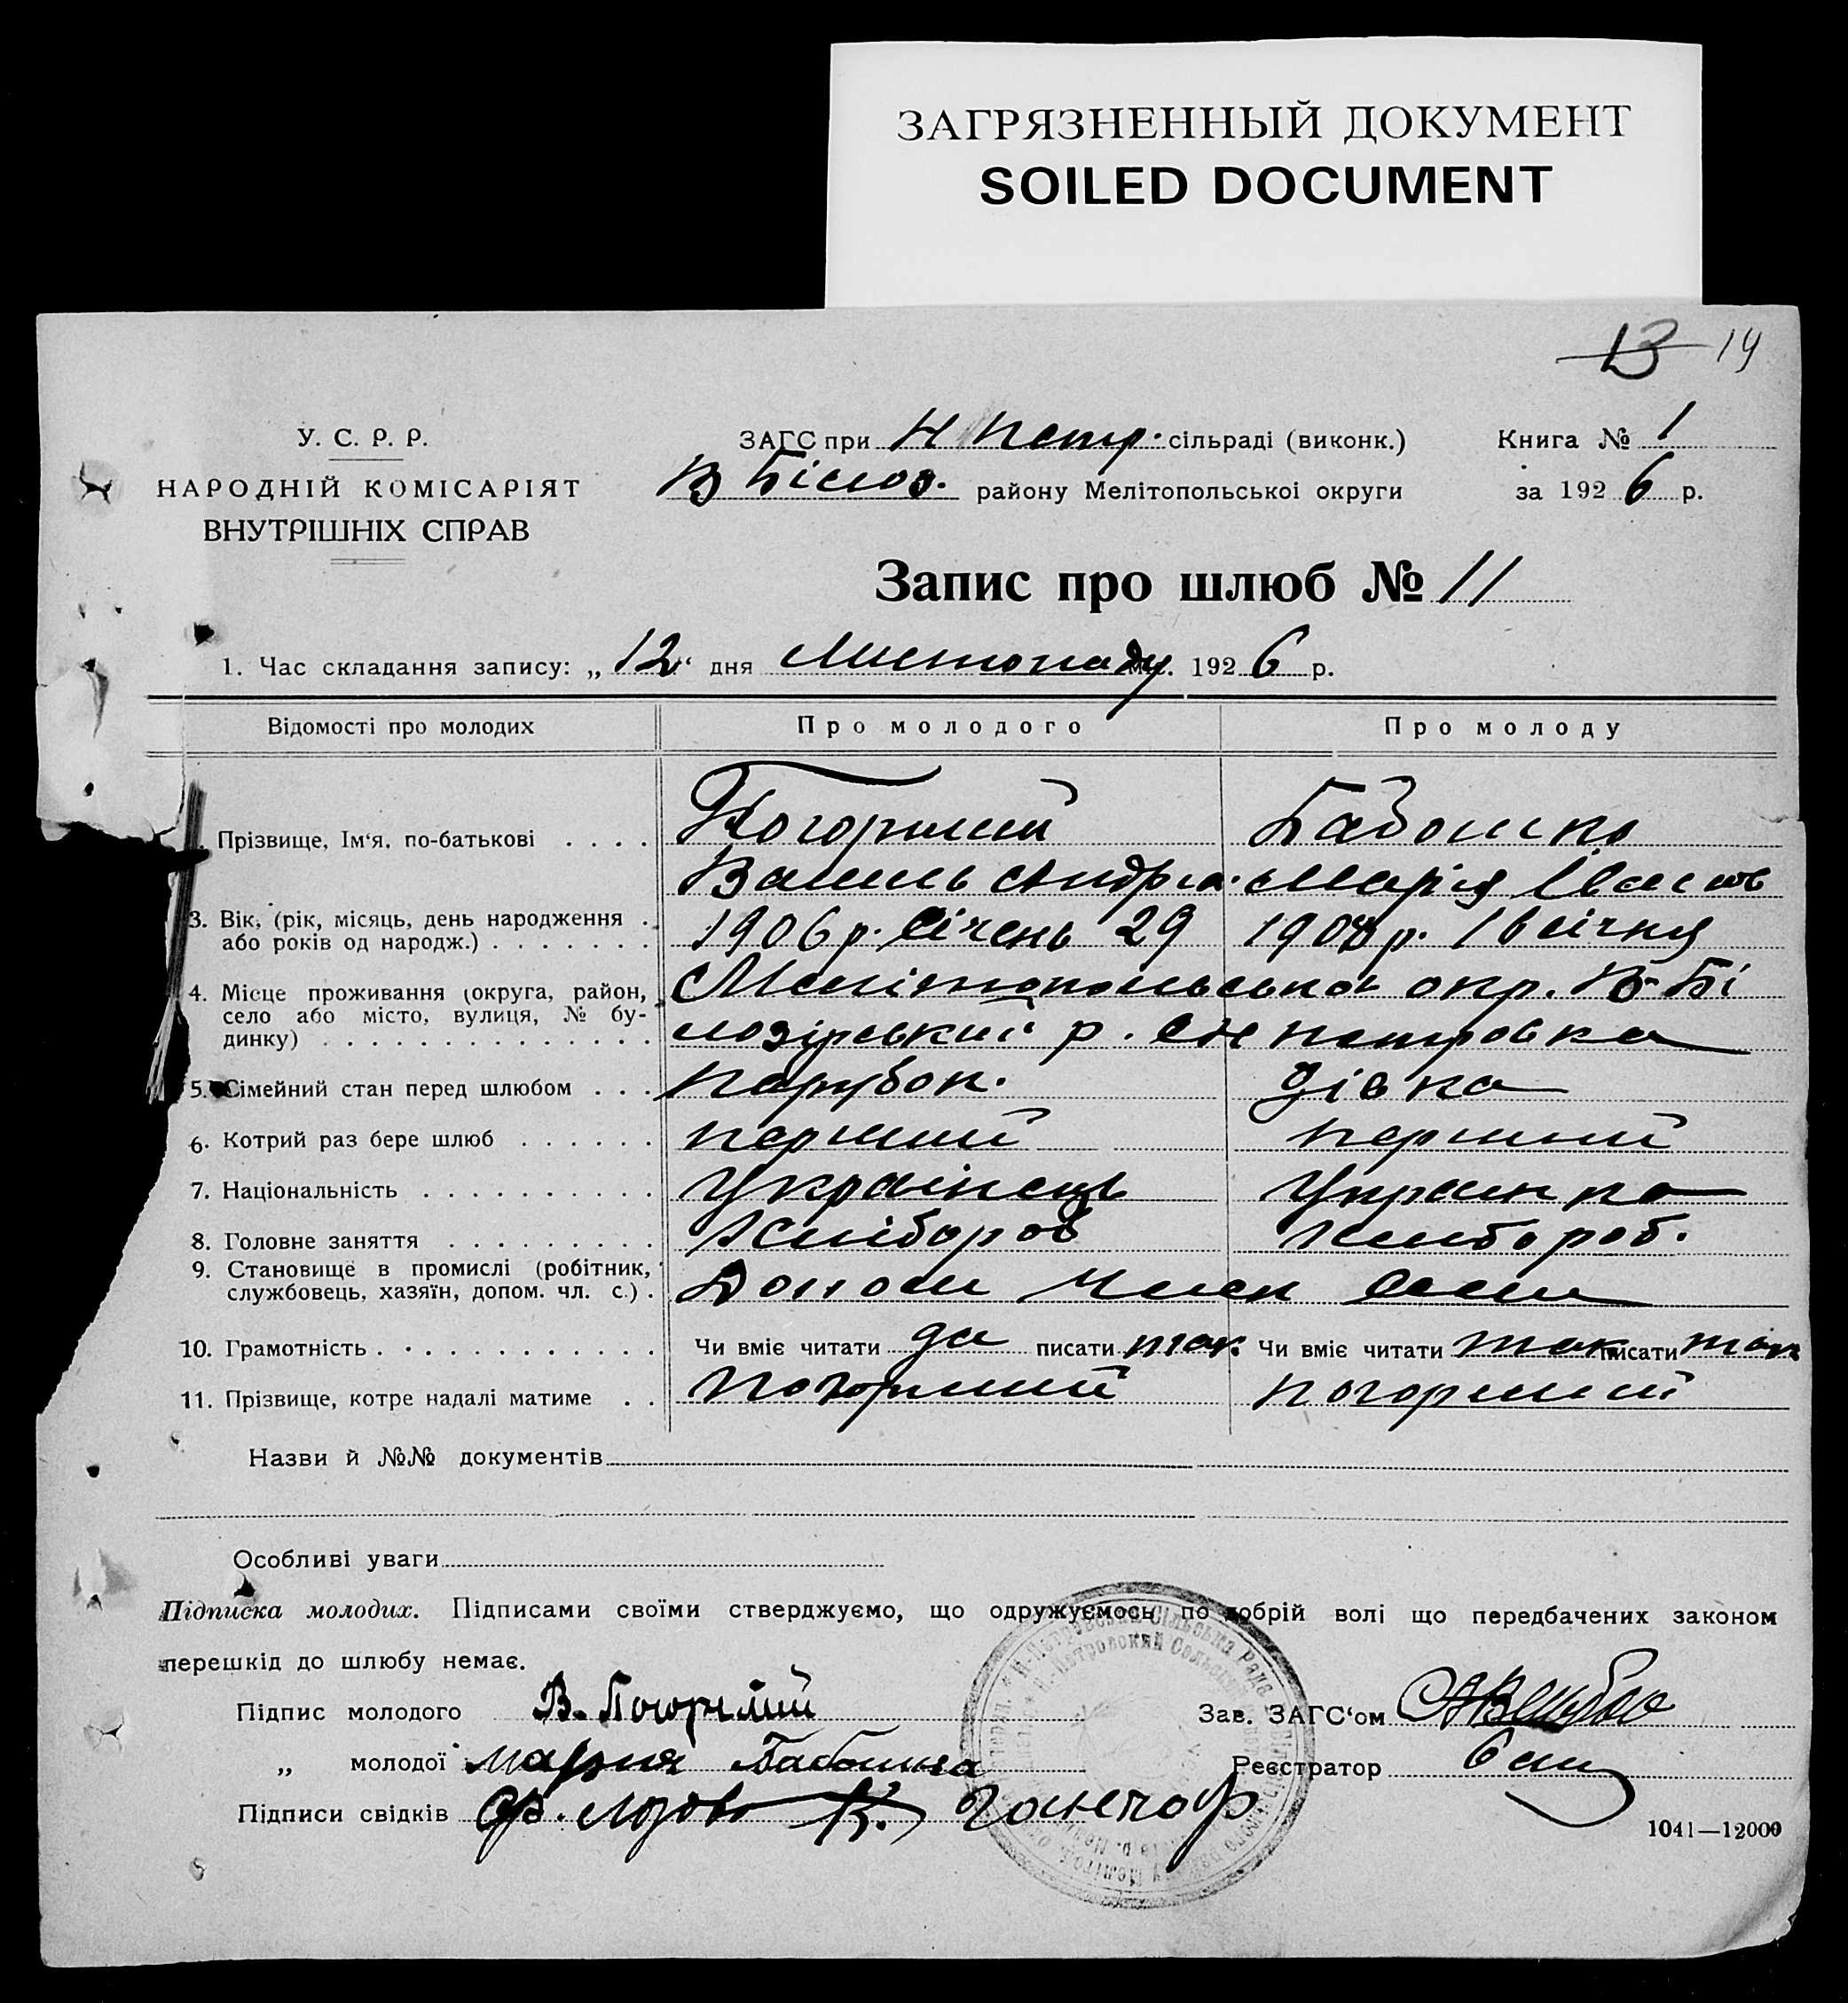 ЗАГРЯЗНЕННЫЙ ДОКУМЕНТ
SOILED DOCUMENT
13 14
У. С. Р. Р.
НАРОДНІЙ КОМІСАРІЯТ
ВНУТРІШНІХ СПРАВ
ЗАГС при Н Петр. сільраді (виконк.) Книга № 1
В Білоз. району Мелітопольської округи за 1926 р.
Запис про шлюб № 11
1. Час складання запису: „12“ дня Листопаду м. 1926 р.
Відомості про молодих Про молодого Про молоду
Прізвище, Ім'я, по-батькові . . . . Погорілий
Василь Андр. Марія Іван
3. Вік, (рік, місяць, день народження . 1906 р. Січень 29 190 р. січня
або років од народж.) . . . . . . .
4. Місце проживання (округа, район, Мелітопольська окр. В-Бі
село або місто, вулиця, № бу- лозірський р. с Н петровка
динку) . . . . . . . . . . . . . . .
5. Сімейний стан перед шлюбом . . . парубок. дівка
6. Котрий раз бере шлюб . . . . . . перший перший
7. Національність . . . . . . . . . . Українець Українка
8. Головне заняття . . . . . . . . . Хлібороб Хлібороб.
9. Становище в промислі (робітник, Допом член сем
службовець, хазяїн, допом. чл. с.) .
10. Грамотність . . . . . . . . . . . . Чи вміє читати да писати так. Чи вміє читати так писати так
11. Прізвище, котре надалі матиме . . Погорілий Погорілий
Назви й №№ документів
Особливі уваги
Підписка молодих. Підписами своїми стверджуємо, що одружуємось по добрій волі що передбачених законом
перешкід до шлюбу немає.
Підпис молодого В. Погорілий Зав. ЗАГС'ом
„ молодої Мария Реєстратор
Підписи свідків Гончар
1041—12000
Н-Петровська Сільська Рада
Н.-Петровский